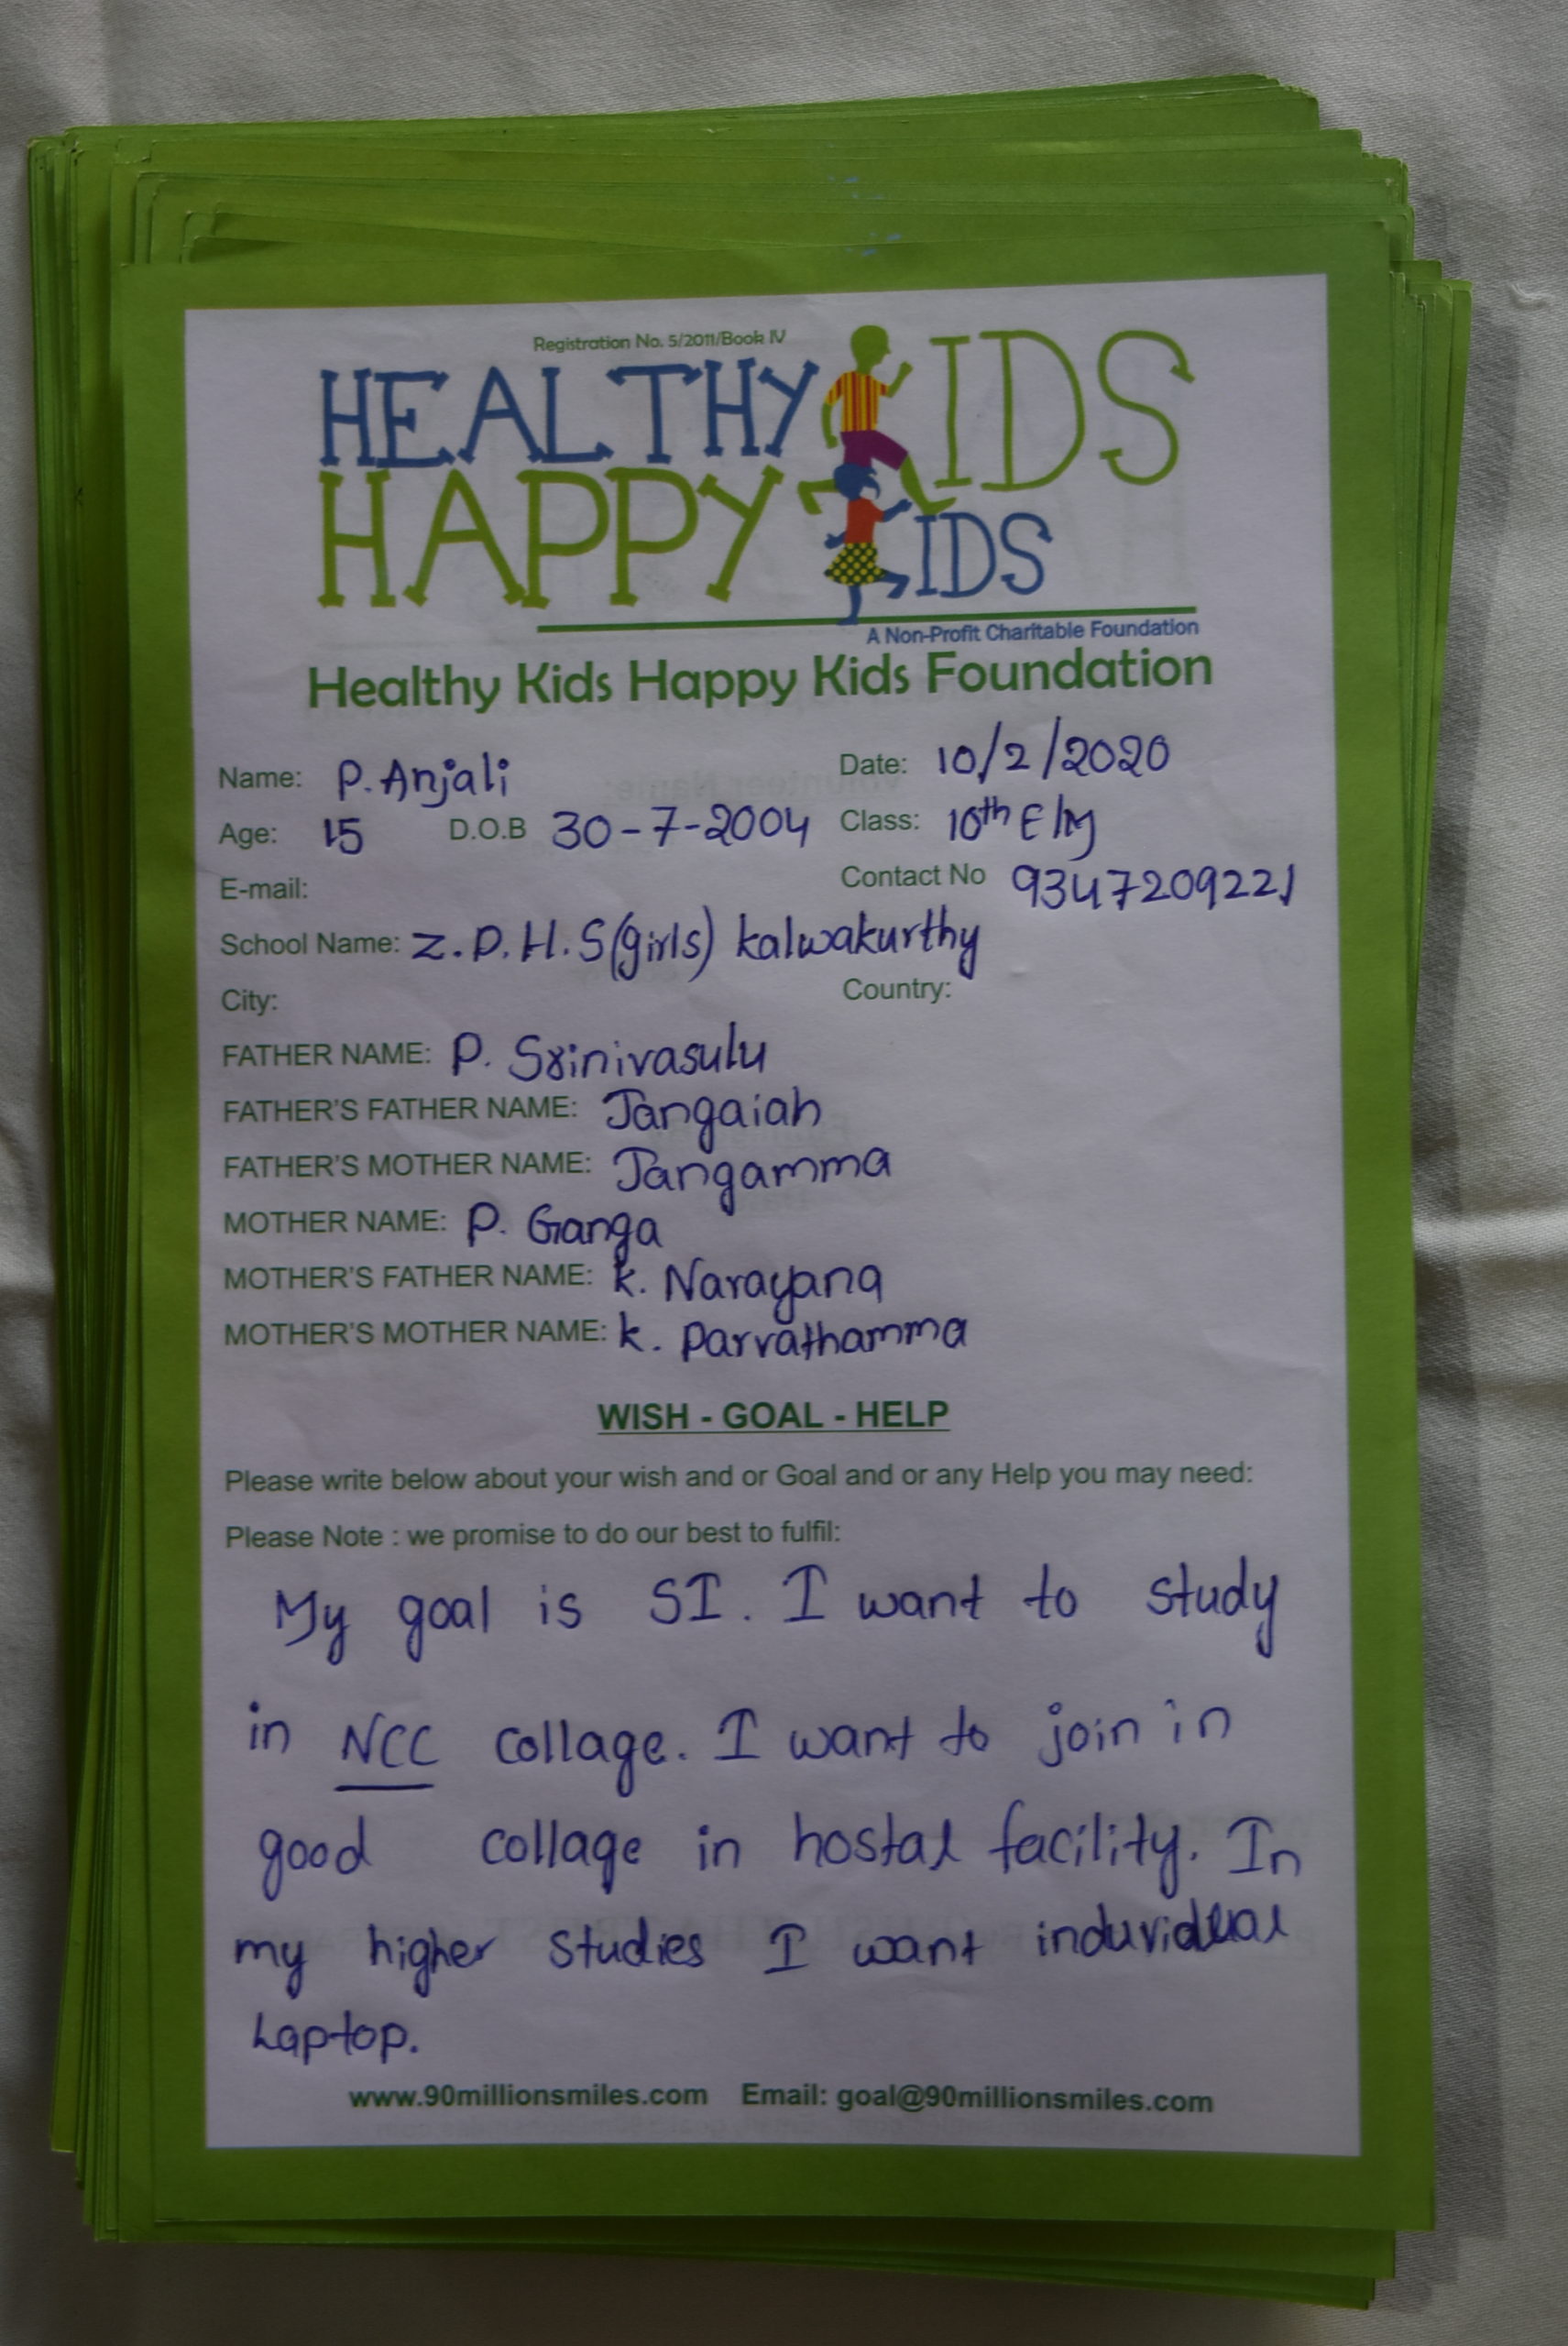 Registration No. 5/2011/Book IV
HEALTHY KIDS
HAPPY KIDS
A Non-Profit Charitable Foundation
Healthy Kids Happy Kids Foundation
Name: P. Anjali Date: 10/2/2020
Age: 15 D.O.B 30-7-2004 Class: 10th E/M
E-mail: Contact No 9347209221
School Name: Z.P.H.S(girls) kalwakurthy
City: Country:
FATHER NAME: P. Srinivasulu
FATHER'S FATHER NAME: Jangaiah
FATHER'S MOTHER NAME: Jangamma
MOTHER NAME: P. Ganga
MOTHER'S FATHER NAME: k. Narayana
MOTHER'S MOTHER NAME: k. Parvathamma
WISH - GOAL - HELP
Please write below about your wish and or Goal and or any Help you may need:
Please Note : we promise to do our best to fulfil:
My goal is SI. I want to study
in NCC collage. I want to join in
good collage in hostal facility. In
my higher studies I want induvidual
Laptop.
www.90millionsmiles.com Email: goal@90millionsmiles.com